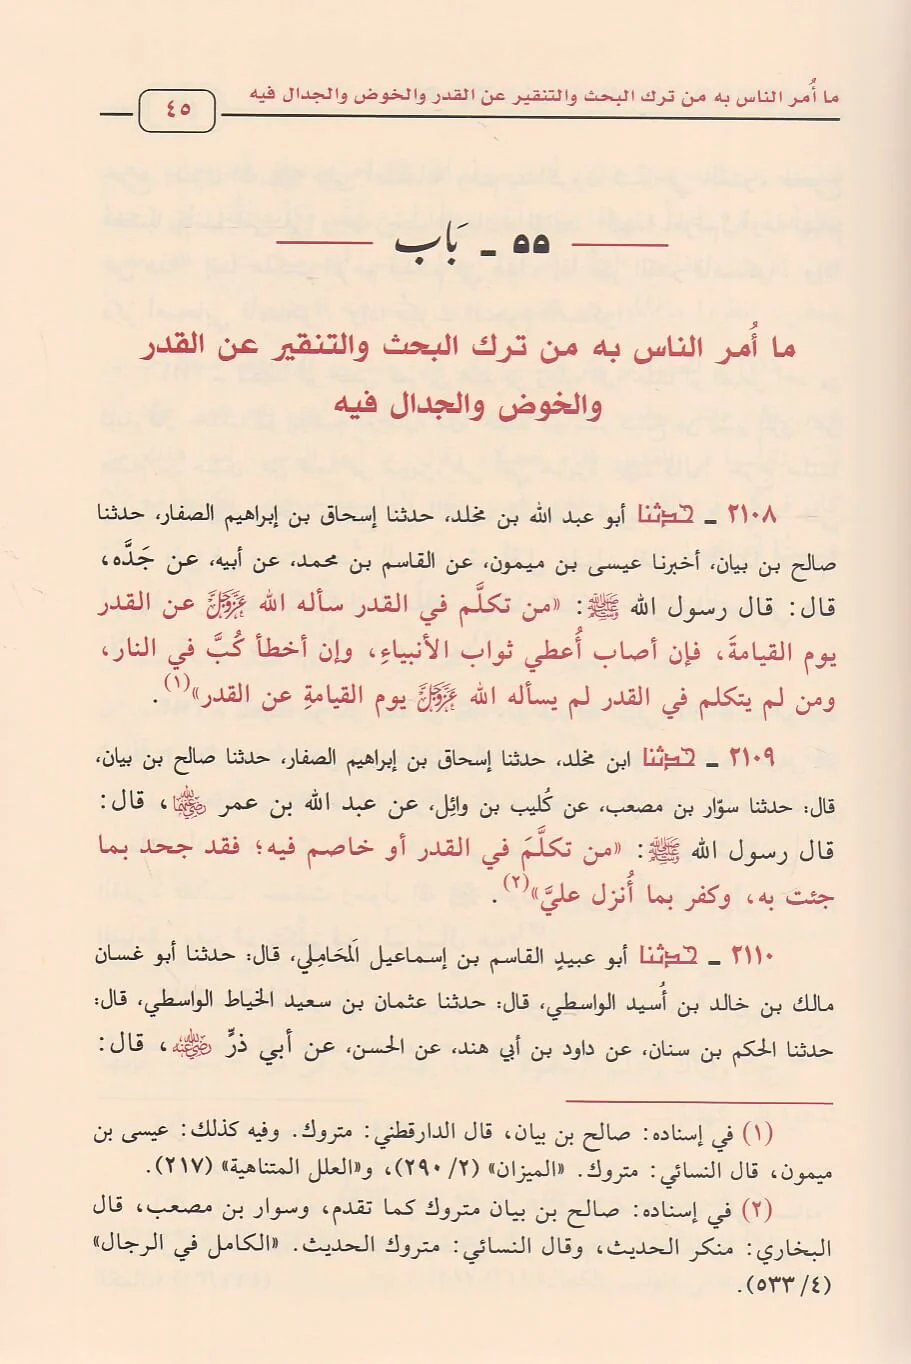 ما أُمر الناس به من ترك البحث والتنقير عن القدر والخوض والجدال فيه
٤٥
٥٥ ـ بَاب
ما أُمر الناس به من ترك البحث والتنقير عن القدر
والخوض والجدال فيه
٢١٠٨ ـ حدثنا أبو عبد الله بن مخلد، حدثنا إسحاق بن إبراهيم الصفار، حدثنا
صالح بن بيان، أخبرنا عيسى بن ميمون، عن القاسم بن محمد، عن أبيه، عن جَدَّه،
قال: قال رسول الله ﷺ: «من تكلَّم في القدر سأله الله عَزَّوَجَلَّ عن القدر
يوم القيامةَ، فإن أصاب أُعطي ثواب الأنبياءِ، وإن أخطأ كُبَّ في النار،
ومن لم يتكلم في القدر لم يسأله الله عَزَّوَجَلَّ يوم القيامةِ عن القدر»(١).
٢١٠٩ ـ حدثنا ابن مخلد، حدثنا إسحاق بن إبراهيم الصفار، حدثنا صالح بن بيان،
قال: حدثنا سوّار بن مصعب، عن كُليب بن وائِل، عن عبد الله بن عمر رضي الله عنهما، قال:
قال رسول الله ﷺ: «من تكلَّمَ في القدر أو خاصم فيه؛ فقد جحد بما
جئت به، وكفر بما أُنزل عليَّ»(٢).
٢١١٠ ـ حدثنا أبو عبيدٍ القاسم بن إسماعيل المَحَامِلي، قال: حدثنا أبو غسان
مالك بن خالد بن أُسيد الواسطي، قال: حدثنا عثمان بن سعيد الخياط الواسطي، قال:
حدثنا الحكم بن سنان، عن داود بن أبي هند، عن الحسن، عن أبي ذرٍّ رضي الله عنه، قال:
(١) في إسناده: صالح بن بيان، قال الدارقطني: متروك. وفيه كذلك: عيسى بن
ميمون، قال النسائي: متروك. «الميزان» (٢/ ٢٩٠)، و«العلل المتناهية» (٢١٧).
(٢) في إسناده: صالح بن بيان متروك كما تقدم، وسوار بن مصعب، قال
البخاري: منكر الحديث، وقال النسائي: متروك الحديث. «الكامل في الرجال»
(٤/ ٥٣٣).